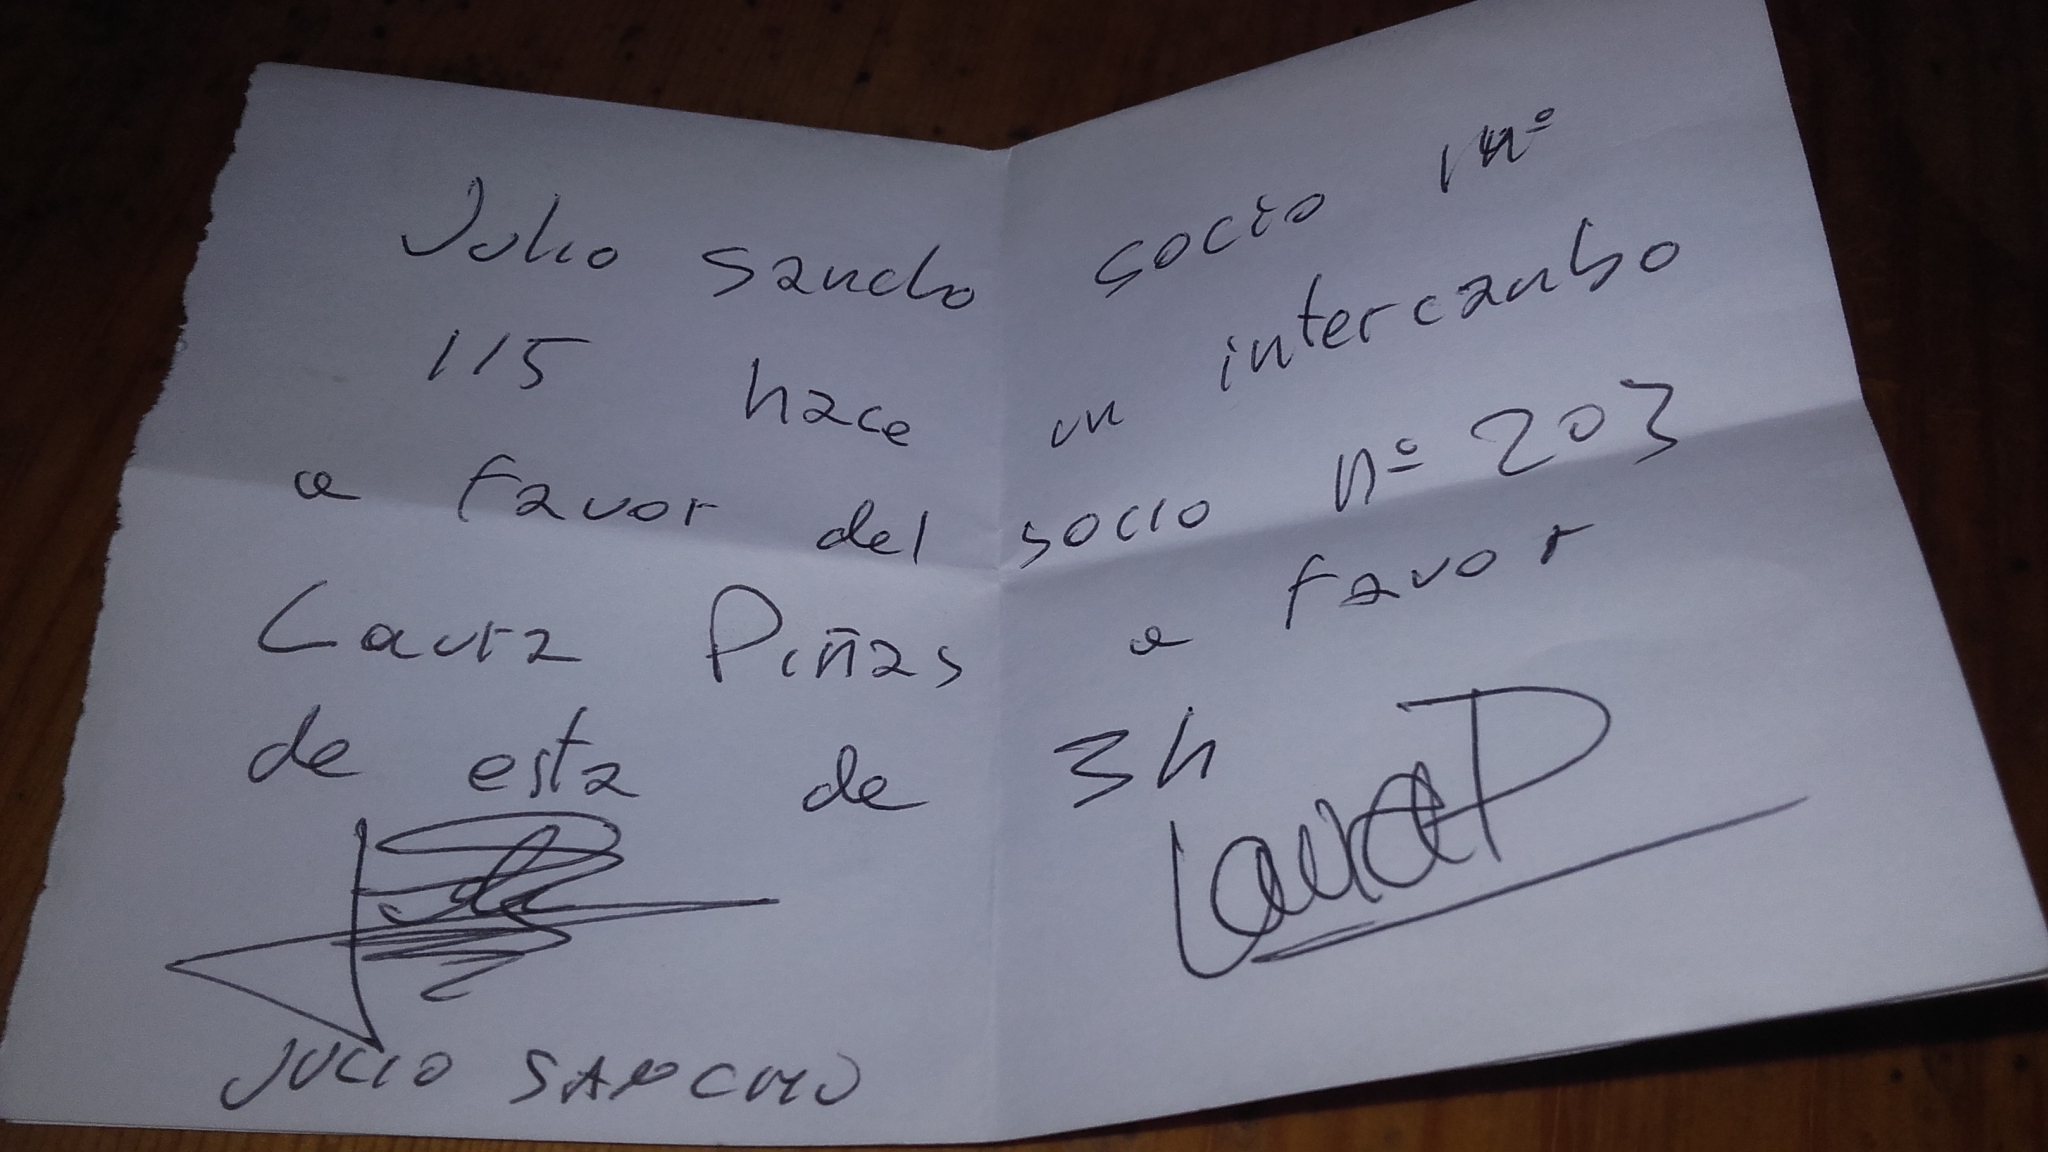 Julio Sancho socio nº
115 hace un intercambio
a favor del socio nº 203
Laura Piñas a favor
de esta de 3h
LauraP
JULIO SANCHO